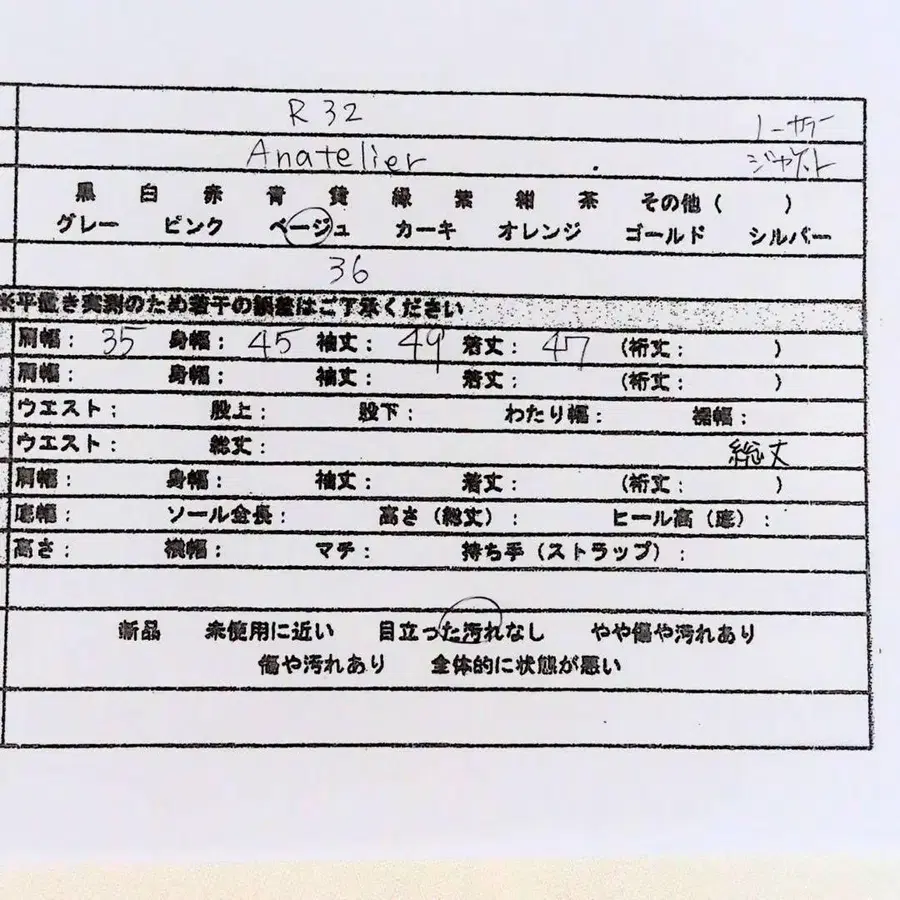 R 32
ノーカラー
Anatelier
ジャケット
黒 白 赤 青 黄 緑 紫 紺 茶 その他（ ）
グレー ピンク ベージュ カーキ オレンジ ゴールド シルバー
36
※平置き実測のため若干の誤差はご了承ください
肩幅： 35 身幅： 45 袖丈： 49 着丈： 47 （裄丈： ）
肩幅： 身幅： 袖丈： 着丈： （裄丈： ）
ウエスト： 股上：股下： わたり幅： 裾幅：
ウエスト： 総丈： 総丈
肩幅： 身幅： 袖丈： 着丈： （裄丈： ）
底幅： ソール全長： 高さ（総丈）： ヒール高（底）：
高さ： 横幅： マチ： 持ち手（ストラップ）：
新品 未使用に近い 目立った汚れなし やや傷や汚れあり
傷や汚れあり 全体的に状態が悪い